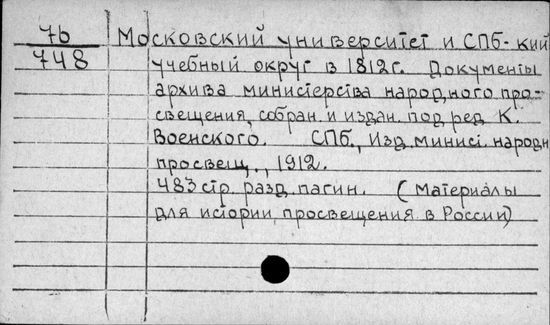 76 Московский университет и СПБ-кий
748 учебный округ в 1812г. Документы
архива министерства народного про-
свещения, собран. и издан. под ред. К.
Военского. СПБ, Изд. минист. народн.
просвещ., 1912.
483 стр. разд. пагин. (Материалы
для истории просвещения в России)